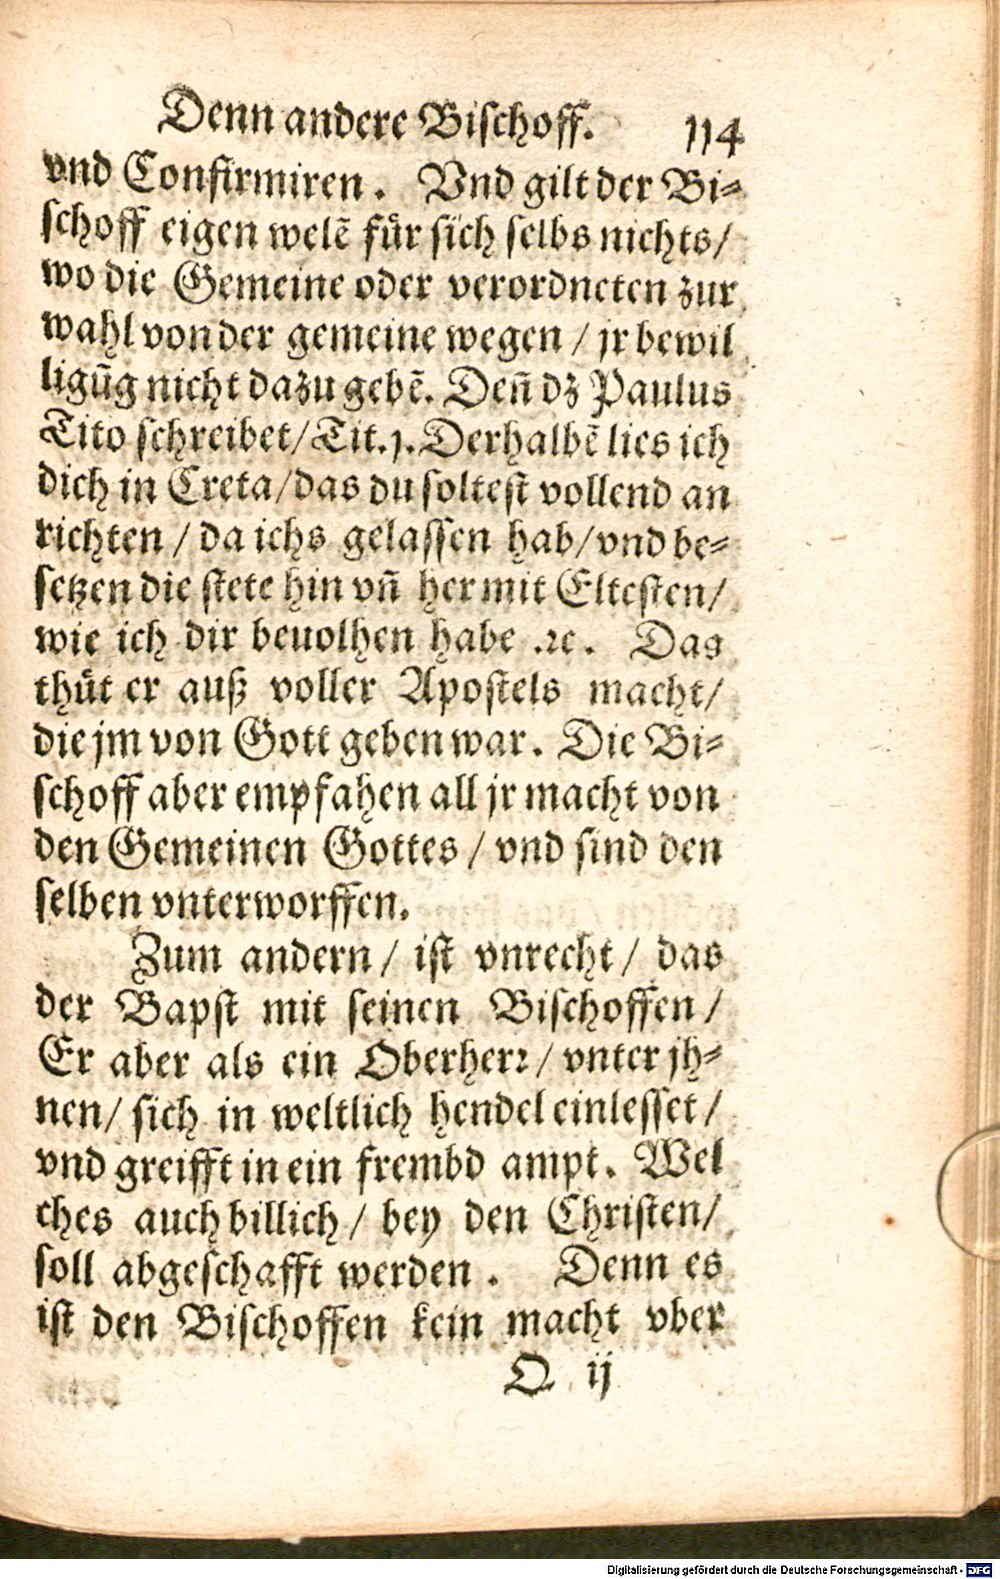 Denn andere Bischoff. 114
vnd Confirmiren. Vnd gilt der Bi-
schoff eigen welē für sich selbs nichts/
wo die Gemeine oder verordneten zur
wahl von der gemeine wegen / jr bewil
ligūg nicht dazu gebē. Deñ dz Paulus
Tito schreibet/ Tit. j. Derhalbē lies ich
dich in Creta/ das du soltest vollend an
richten / da ichs gelassen hab/ vnd be-
setzen die stete hin vñ her mit Eltesten/
wie ich dir beuolhen habe .ꝛc. Das
thůt er auß voller Apostels macht/
die jm von Gott geben war. Die Bi-
schoff aber empfahen all jr macht von
den Gemeinen Gottes / vnd sind den
selben vnterworffen.
Zum andern / ist vnrecht / das
der Bapst mit seinen Bischoffen /
Er aber als ein Oberherꝛ / vnter jh-
nen/ sich in weltlich hendel einlesset /
vnd greifft in ein frembd ampt. Wel
ches auch billich / bey den Christen/
soll abgeschafft werden . Denn es
ist den Bischoffen kein macht vber
O ij
Digitalisierung gefördert durch die Deutsche Forschungsgemeinschaft - DFG